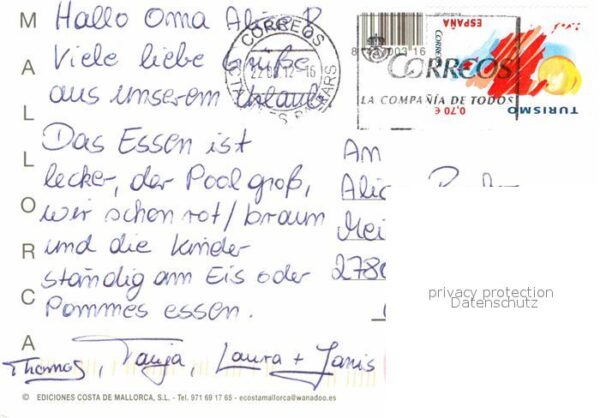 MALLORCA
Hallo Oma
Viele liebe Grüße
aus unserem Urlaub
Das Essen ist
lecker, der Pool groß,
wir schon rot/braun
und die Kinder
ständig am Eis oder
Pommes essen.
Thomas, Tanja, Laura + Janis
CORREOS
CORREOS
LA COMPAÑÍA DE TODOS
ESPAÑA
CORREOS
TURISMO
0,70 €
An
Mei
privacy protection
Datenschutz
© EDICIONES COSTA DE MALLORCA, S.L. - Tel. 971 69 17 65 - ecostamallorca@wanadoo.es